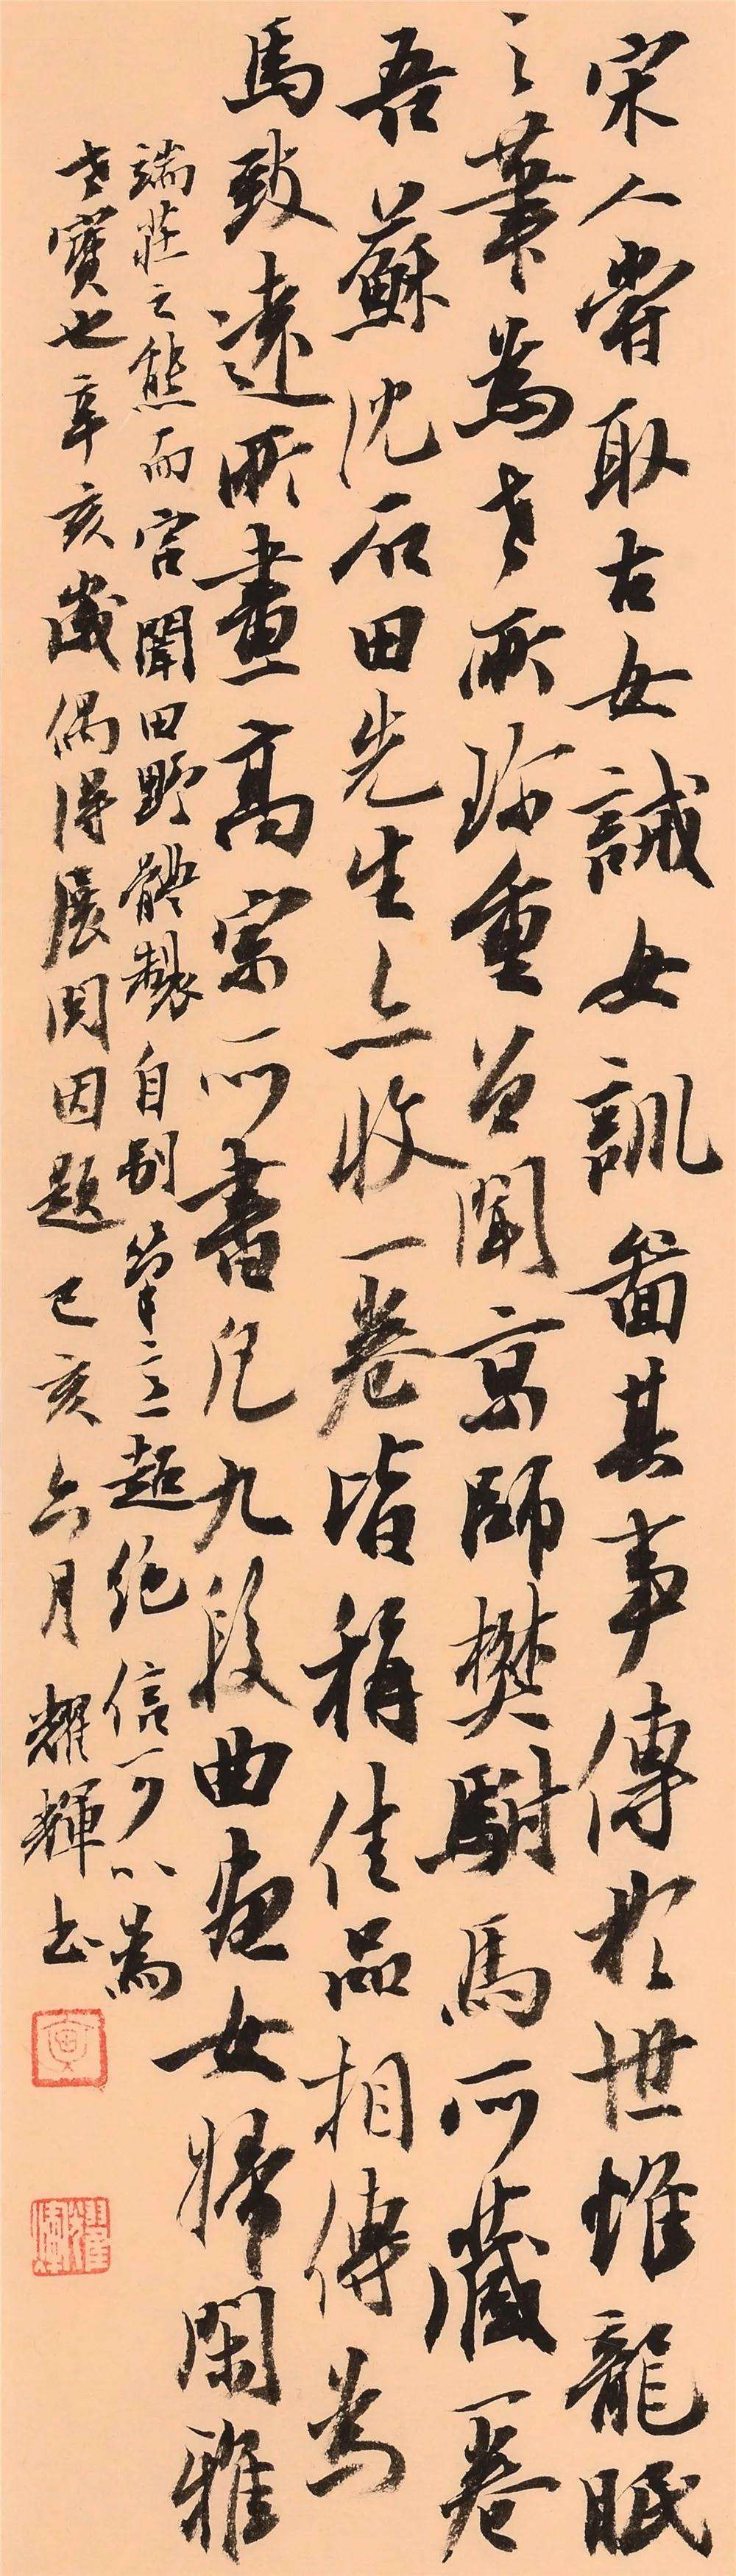 宋人嘗取古女誡女訓畫其事傳於世惟龍眠
之筆為世所珍重曾聞京師樊駙馬所藏一卷
吾蘇沈石田先生亦收一卷皆稱佳品相傳為
馬致遠所畫高宗所書凡九段曲盡女婦閑雅
端莊之態而宮闈田野體製自別筆意超絕信可以為
世寶也辛亥歲偶得展閱因題 己亥六月 耀輝書